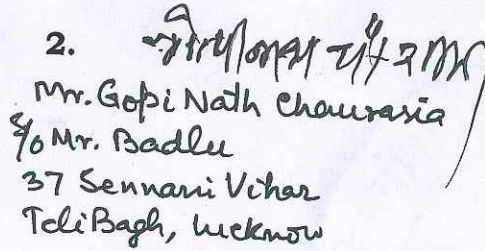 2. गोपीनाथ चौरसिया
Mr. Gopi Nath Chaurasia
S/o Mr. Badlu
37 Sennani Vihar
Teli Bagh, Lucknow